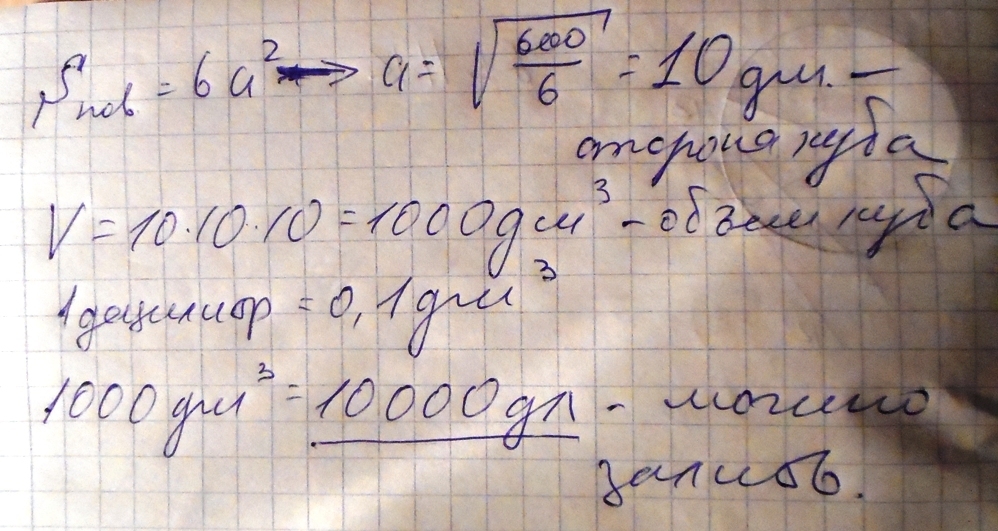 Sпов = 6a² → a = √600/6 = 10 дм. –
сторона куба
V = 10·10·10 = 1000 дм³ – объем куба
1 децилитр = 0,1 дм³
1000 дм³ = 10000 дл – можно
залить.